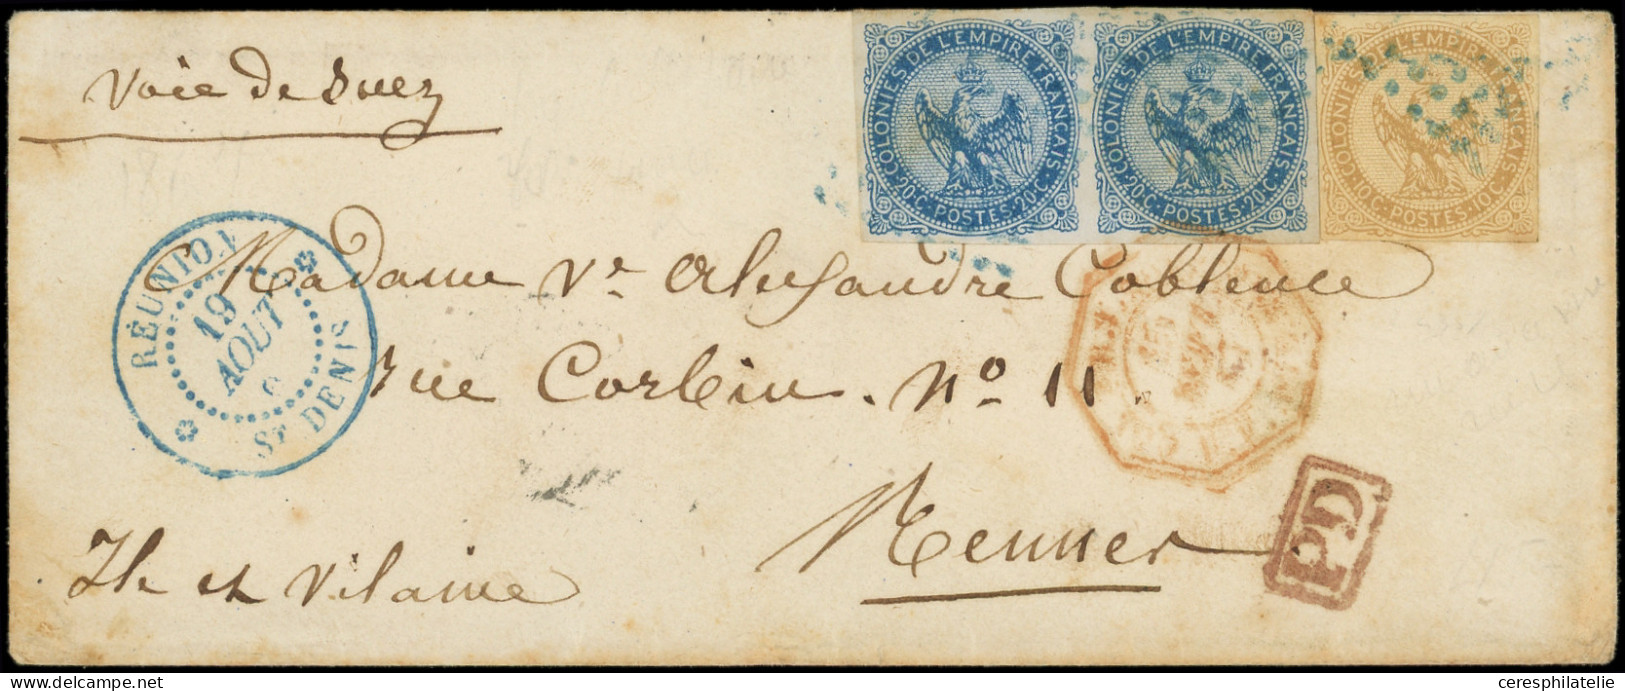 Voie de Suez
COLONIES DE L'EMPIRE FRANÇAIS
20.C. POSTES.20.C.
COLONIES DE L'EMPIRE FRANÇAIS
20.C. POSTES.20.C.
COLONIES DE L'EMPIRE FRANÇAIS
10.C. POSTES.10.C.
RÉUNION
19
AOUT
ST DENIS
Madame Ve Alexandre Coblence
rue Corbin. No 11.
Rennes
PD
Ille et Vilaine
www.delcampe.net
ceresphilatelie